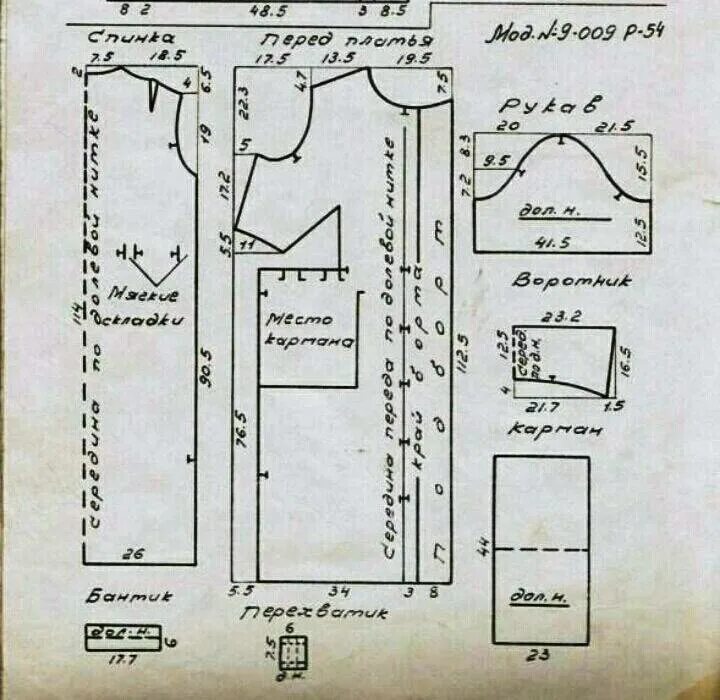 8 2 48.5 3 8.5
Мод. № 9-009 Р-54
Спинка
7.5 18.5
2
4
6.5
19
середина по долевой нитке
114
Мягкие
складки
90.5
26
Перед платья
17.5 13.5 19.5
4.7
7.5
22.3
5
17.2
5.5
11
Место
кармана
76.5
Середина переда по долевой нитке
край борта
Подборт
112.5
5.5 34 3 8
Рукав
20 21.5
8.3
9.5
7.2
15.5
дол. н.
12.5
41.5
Воротник
23.2
12.5
серед.
по д.н.
16.5
4
21.7 1.5
карман
44
дол. н.
23
Бантик
дол. н.
6
17.7
Перехватик
6
7.5
д.н.